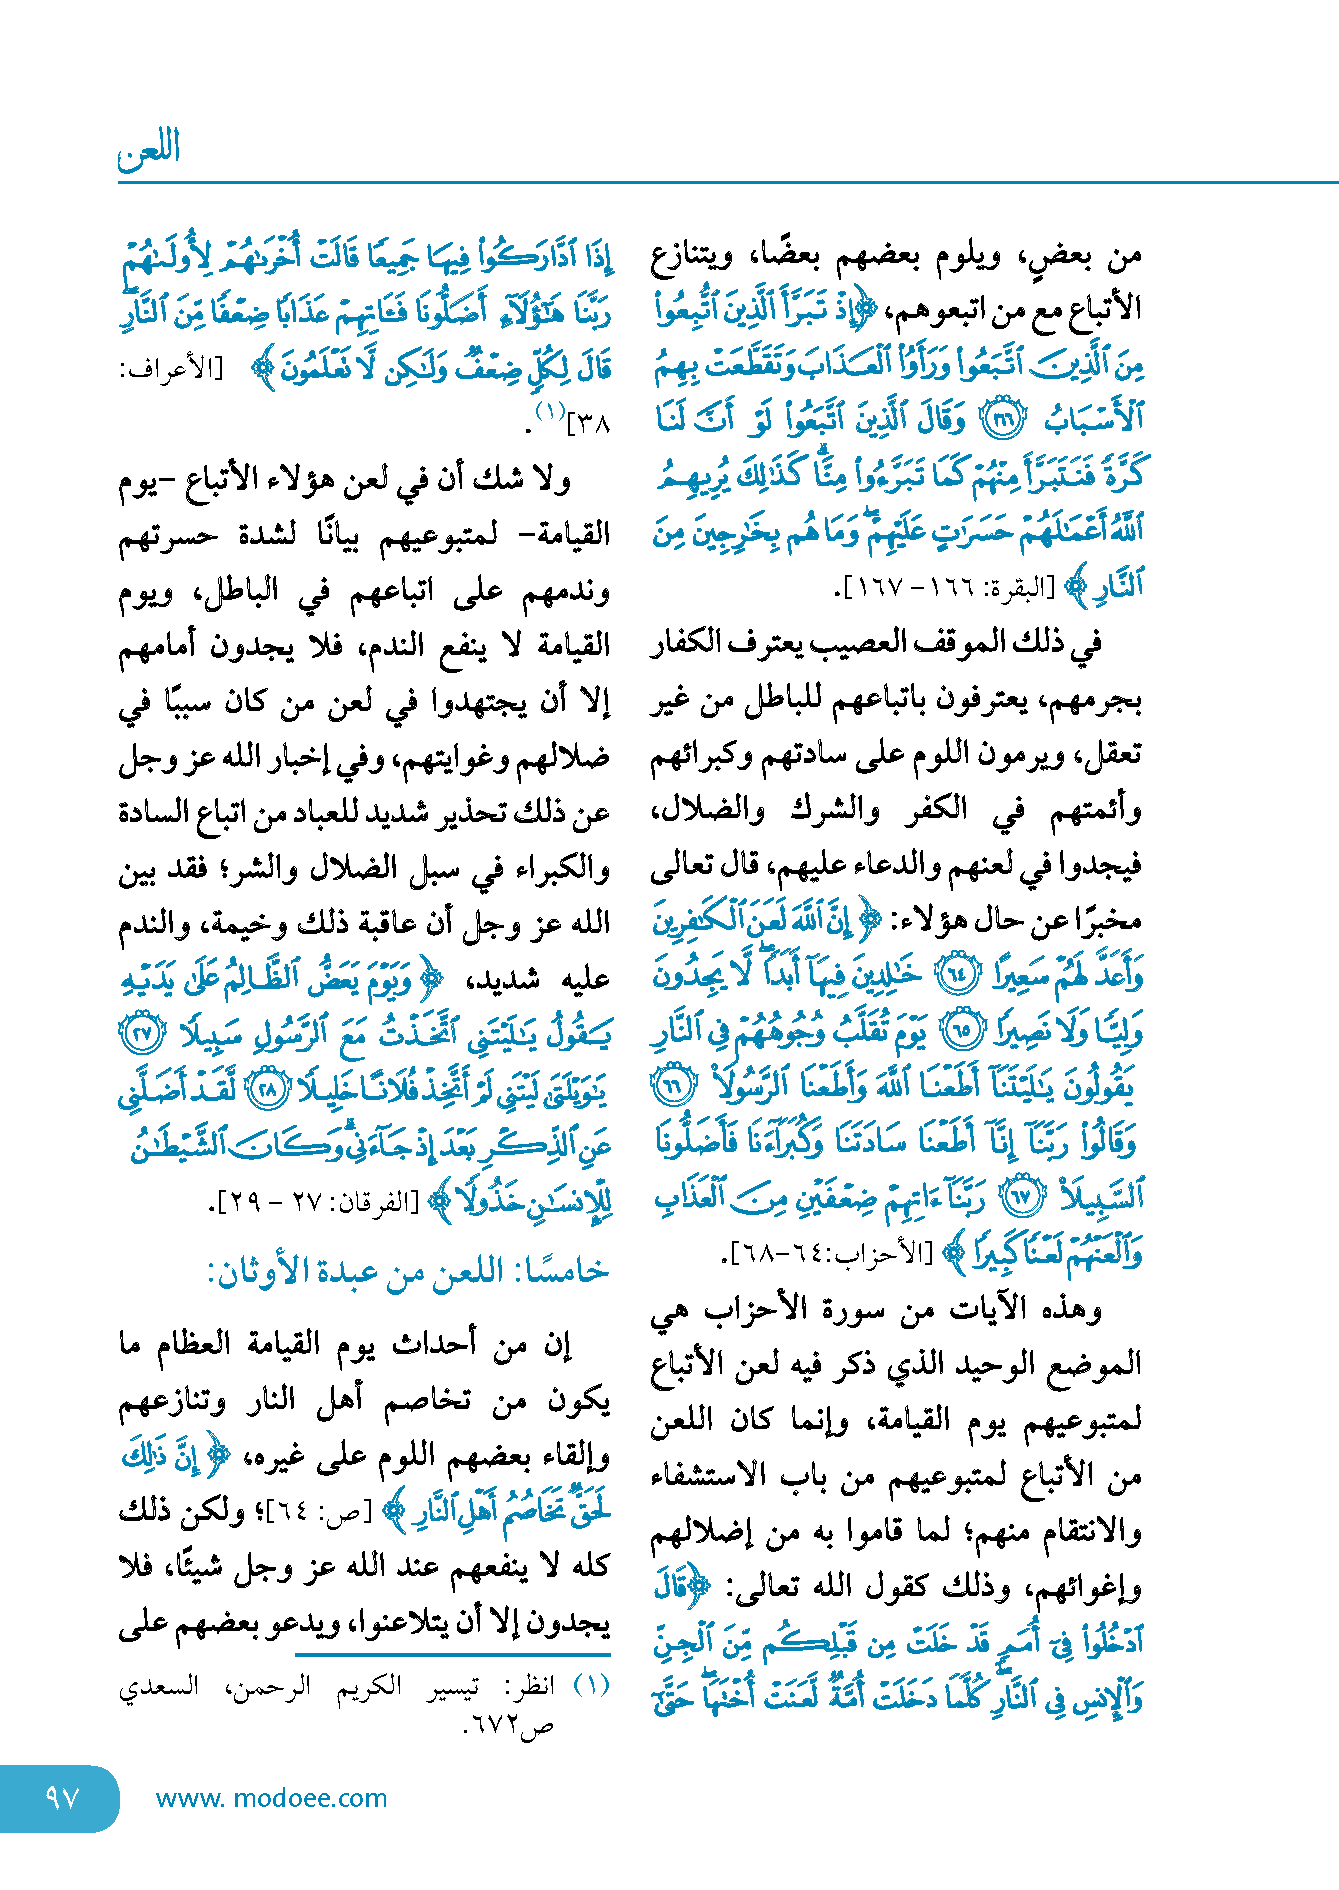 اللعن
من بعضٍ، ويلوم بعضهم بعضًا، ويتنازع
الأتباع مع من اتبعوهم، ﴿إِذْ تَبَرَّأَ ٱلَّذِينَ ٱتُّبِعُوا۟
مِنَ ٱلَّذِينَ ٱتَّبَعُوا۟ وَرَأَوُا۟ ٱلْعَذَابَ وَتَقَطَّعَتْ بِهِمُ
ٱلْأَسْبَابُ ﴿١٦٦﴾ وَقَالَ ٱلَّذِينَ ٱتَّبَعُوا۟ لَوْ أَنَّ لَنَا
كَرَّةً فَنَتَبَرَّأَ مِنْهُمْ كَمَا تَبَرَّءُوا۟ مِنَّا ۗ كَذَٰلِكَ يُرِيهِمُ
ٱللَّهُ أَعْمَـٰلَهُمْ حَسَرَٰتٍ عَلَيْهِمْ ۖ وَمَا هُم بِخَـٰرِجِينَ مِنَ
ٱلنَّارِ﴾ [البقرة: ١٦٦- ١٦٧].
في ذلك الموقف العصيب يعترف الكفار
بجرمهم، يعترفون باتباعهم للباطل من غير
تعقل، ويرمون اللوم على ساداتهم وكبرائهم
وأئمتهم في الكفر والشرك والضلال،
فيجدوا في لعنهم والدعاء عليهم، قال تعالى
مخبرًا عن حال هؤلاء: ﴿إِنَّ ٱللَّهَ لَعَنَ ٱلْكَـٰفِرِينَ
وَأَعَدَّ لَهُمْ سَعِيرًا ﴿٦٤﴾ خَـٰلِدِينَ فِيهَآ أَبَدًا ۖ لَّا يَجِدُونَ
وَلِيًّا وَلَا نَصِيرًا ﴿٦٥﴾ يَوْمَ تُقَلَّبُ وُجُوهُهُمْ فِى ٱلنَّارِ
يَقُولُونَ يَـٰلَيْتَنَآ أَطَعْنَا ٱللَّهَ وَأَطَعْنَا ٱلرَّسُولَا۠ ﴿٦٦﴾
وَقَالُوا۟ رَبَّنَآ إِنَّآ أَطَعْنَا سَادَتَنَا وَكُبَرَآءَنَا فَأَضَلُّونَا
ٱلسَّبِيلَا۠ ﴿٦٧﴾ رَبَّنَآ ءَاتِهِمْ ضِعْفَيْنِ مِنَ ٱلْعَذَابِ
وَٱلْعَنْهُمْ لَعْنًا كَبِيرًا﴾ [الأحزاب:٦٤-٦٨].
وهذه الآيات من سورة الأحزاب هي
الموضع الوحيد الذي ذكر فيه لعن الأتباع
لمتبوعيهم يوم القيامة، وإنما كان اللعن
من الأتباع لمتبوعيهم من باب الاستشفاء
والانتقام منهم؛ لما قاموا به من إضلالهم
وإغوائهم، وذلك كقول الله تعالى: ﴿قَالَ
ٱدْخُلُوا۟ فِىٓ أُمَمٍ قَدْ خَلَتْ مِن قَبْلِكُم مِّنَ ٱلْجِنِّ
وَٱلْإِنسِ فِى ٱلنَّارِ ۖ كُلَّمَا دَخَلَتْ أُمَّةٌ لَّعَنَتْ أُخْتَهَا ۖ حَتَّىٰٓ
إِذَا ٱدَّارَكُوا۟ فِيهَا جَمِيعًا قَالَتْ أُخْرَىٰهُمْ لِأُولَىٰهُمْ
رَبَّنَا هَـٰٓؤُلَآءِ أَضَلُّونَا فَـَٔاتِهِمْ عَذَابًا ضِعْفًا مِّنَ ٱلنَّارِ ۖ
قَالَ لِكُلٍّ ضِعْفٌ وَلَـٰكِن لَّا نَعْلَمُونَ﴾ [الأعراف:
٣٨](١).
ولا شك أن في لعن هؤلاء الأتباع -يوم
القيامة- لمتبوعيهم بيانًا لشدة حسرتهم
وندمهم على اتباعهم في الباطل، ويوم
القيامة لا ينفع الندم، فلا يجدون أمامهم
إلا أن يجتهدوا في لعن من كان سببًا في
ضلالهم وغوايتهم، وفي إخبار الله عز وجل
عن ذلك تحذير شديد للعباد من اتباع السادة
والكبراء في سبل الضلال والشر؛ فقد بين
الله عز وجل أن عاقبة ذلك وخيمة، والندم
عليه شديد، ﴿وَيَوْمَ يَعَضُّ ٱلظَّالِمُ عَلَىٰ يَدَيْهِ
يَقُولُ يَـٰلَيْتَنِى ٱتَّخَذْتُ مَعَ ٱلرَّسُولِ سَبِيلًا ﴿٢٧﴾
يَـٰوَيْلَتَىٰ لَيْتَنِى لَمْ أَتَّخِذْ فُلَانًا خَلِيلًا ﴿٢٨﴾ لَّقَدْ أَضَلَّنِى
عَنِ ٱلذِّكْرِ بَعْدَ إِذْ جَآءَنِى ۗ وَكَانَ ٱلشَّيْطَـٰنُ
لِلْإِنسَـٰنِ خَذُولًا﴾ [الفرقان: ٢٧ - ٢٩].
خامسًا: اللعن من عبدة الأوثان:
إن من أحداث يوم القيامة العظام ما
يكون من تخاصم أهل النار وتنازعهم
وإلقاء بعضهم اللوم على غيره، ﴿إِنَّ ذَٰلِكَ
لَحَقٌّ تَخَاصُمُ أَهْلِ ٱلنَّارِ﴾ [ص: ٦٤]؛ ولكن ذلك
كله لا ينفعهم عند الله عز وجل شيئًا، فلا
يجدون إلا أن يتلاعنوا، ويدعو بعضهم على
(١) انظر: تيسير الكريم الرحمن، السعدي
ص٦٧٢.
٩٧
www. modoee.com